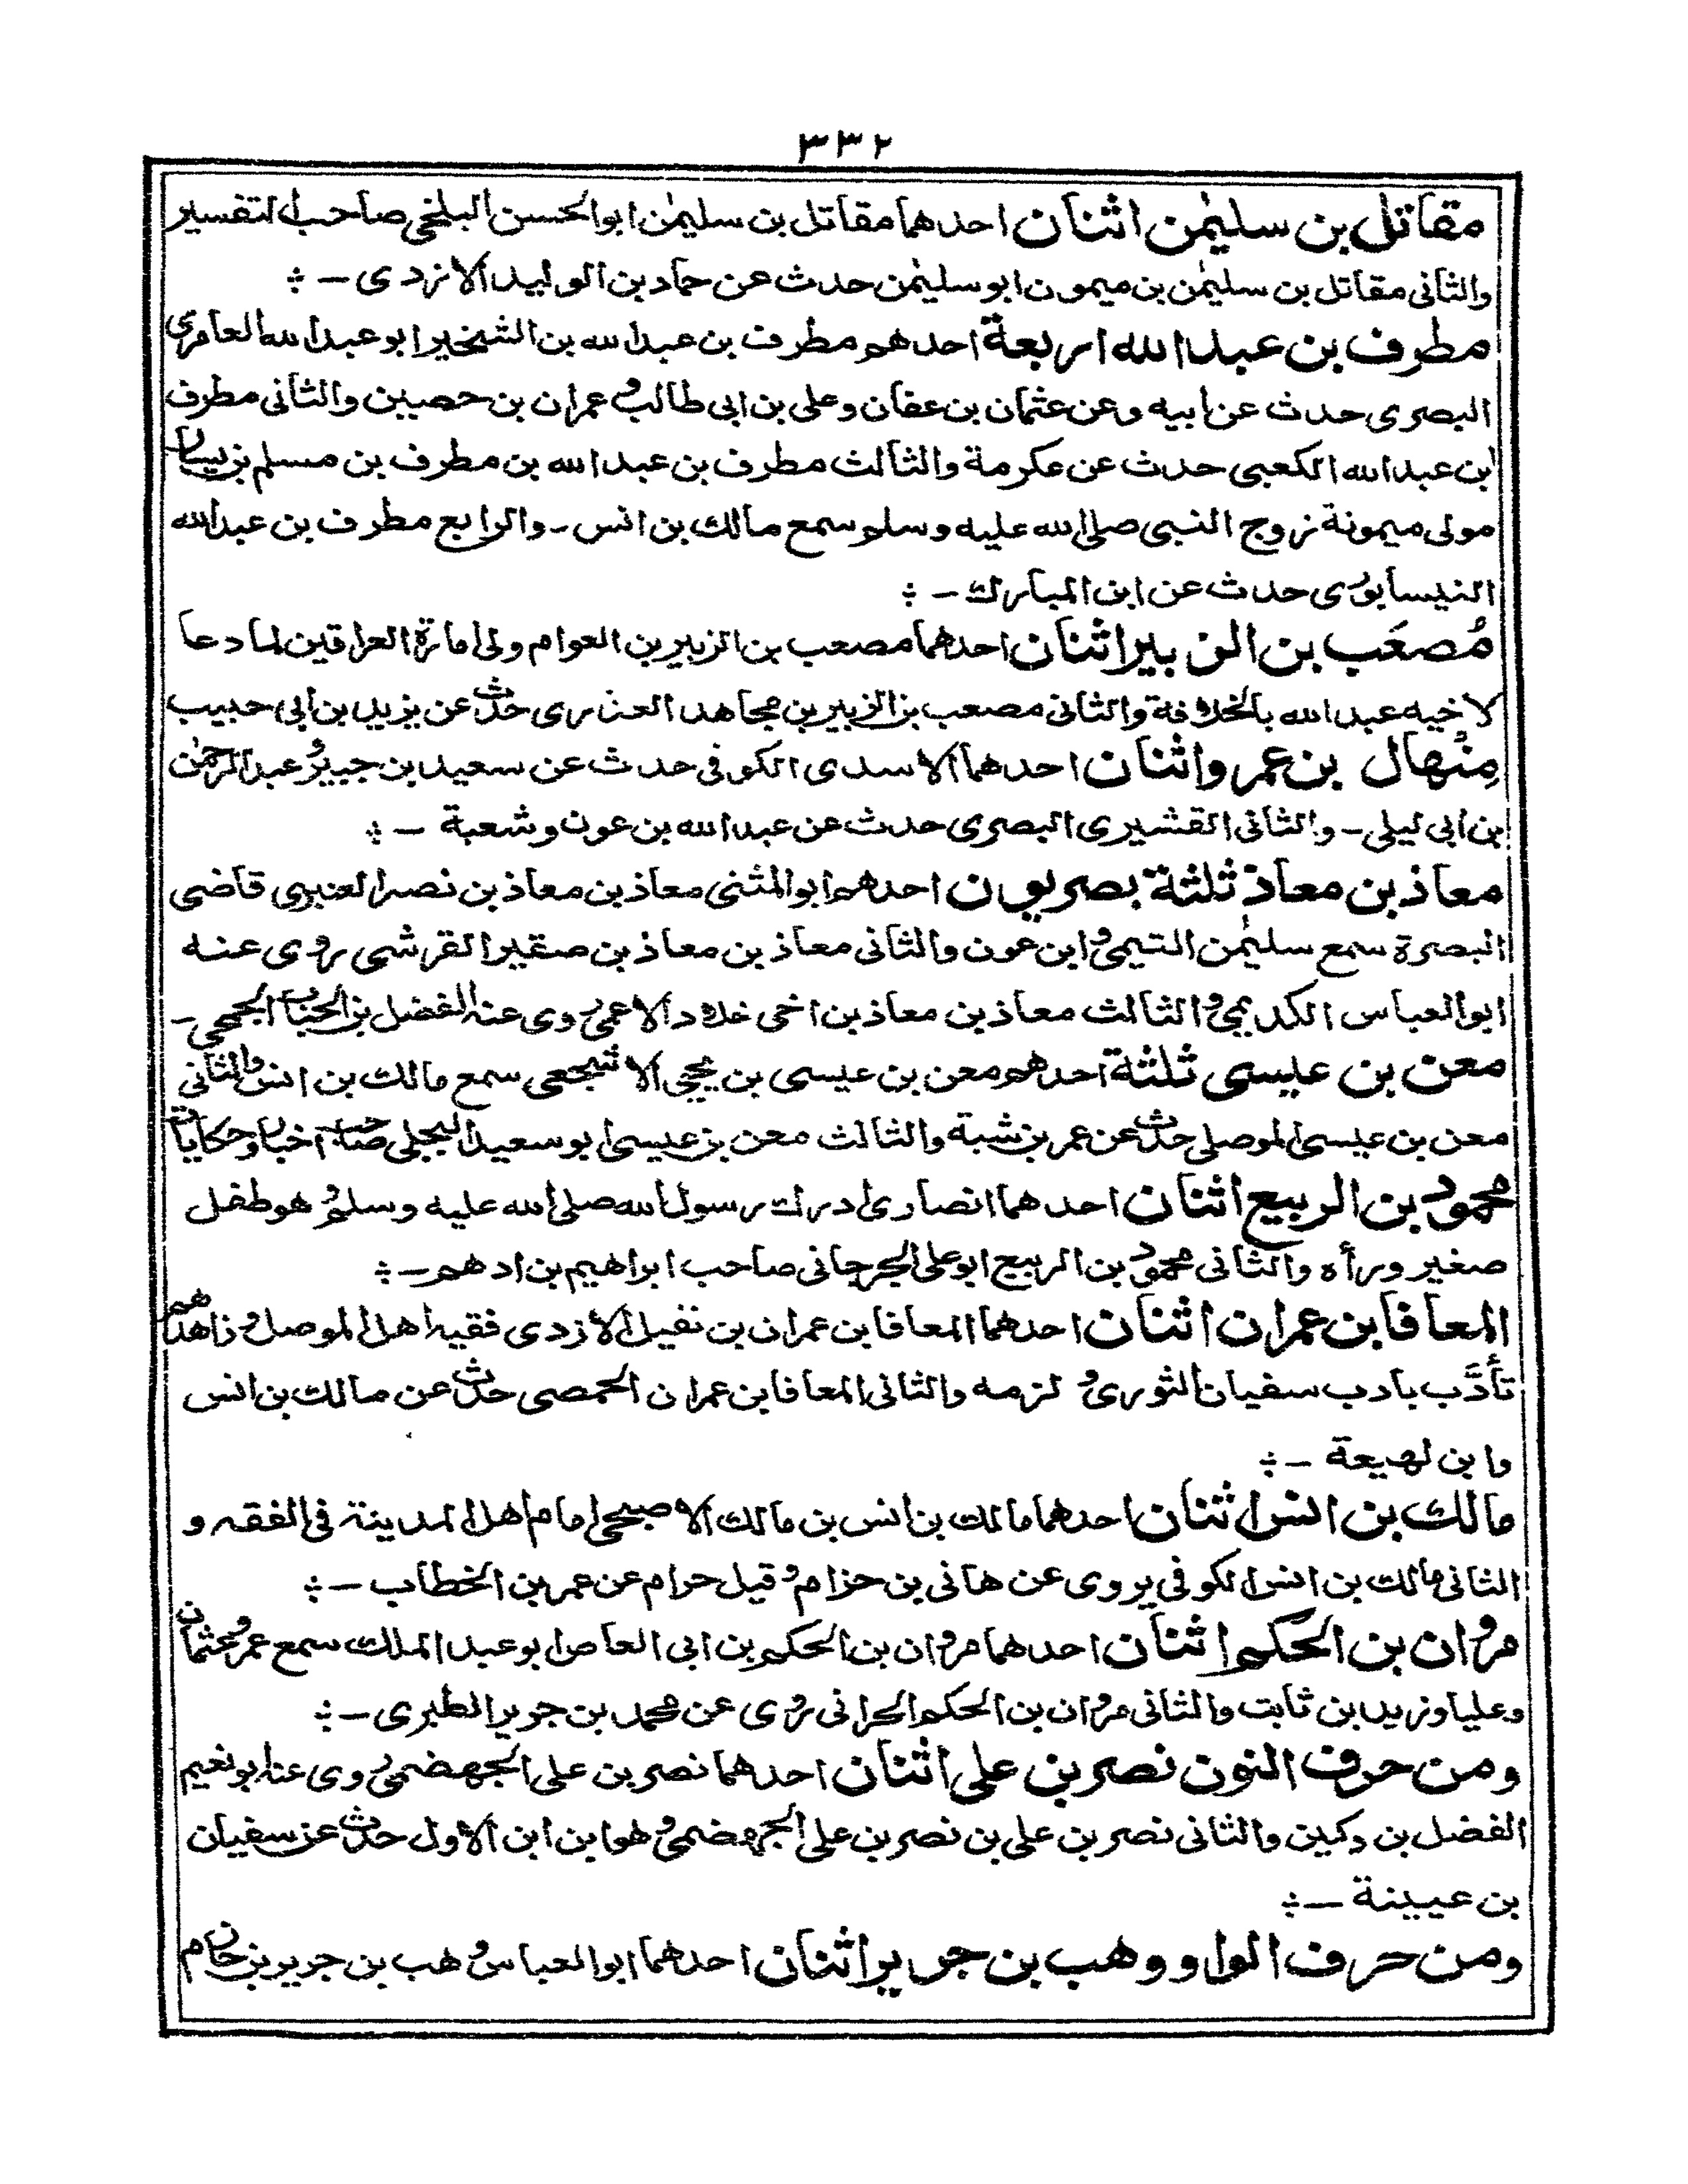 ٣٣٢
مقاتل بن سليمٰن اثنان احدهما مقاتل بن سليمٰن ابوالحسن البلخي صاحب التفسير
والثاني مقاتل بن سليمٰن بن ميمون ابو سليمٰن حدث عن حماد بن الوليد الازدي - ؞
مطرف بن عبد الله اربعة احدهم مطرف بن عبد الله بن الشخير ابو عبد الله العامري
البصري حدث عن ابيه وعن عثمان بن عفان وعلي بن ابي طالب وعمران بن حصين والثاني مطرف
ابن عبد الله الكعبي حدث عن عكرمة والثالث مطرف بن عبد الله بن مطرف بن مسلم بن يسار
مولى ميمونة زوج النبي صلى الله عليه وسلم سمع مالك بن انس - والرابع مطرف بن عبد الله
النيسابوري حدث عن ابن المبارك - ؞
مُصعَب بن الزبير اثنان احدهما مصعب بن الزبير بن العوام ولى امارة العراقين لما دعا
لاخيه عبد الله بالخلافة والثاني مصعب بن الزبير بن مجاهد العذري حدث عن يزيد بن ابي حبيب
مِنْهال بن عمرو اثنان احدهما الاسدي الكوفي حدث عن سعيد بن جبير وعبد الرحمٰن
بن ابي ليلى - والثاني القشيري البصري حدث عن عبد الله بن عون وشعبة - ؞
معاذ بن معاذ ثلثة بصريون احدهم ابو المثنى معاذ بن معاذ بن نصر العنبري قاضي
البصرة سمع سليمٰن التيمي وابن عون والثاني معاذ بن معاذ بن صقير القرشي روى عنه
ابو العباس الكديمي والثالث معاذ بن معاذ بن اخي خلاد الاعمى روى عنه الفضل بن الحباب الجمحي -
معن بن عيسى ثلثة احدهم معن بن عيسى بن يحيى الاشجعي سمع مالك بن انس والثاني
معن بن عيسى الموصلي حدث عن عمر بن شبة والثالث معن بن عيسى ابو سعيد البجلي صاحب اخبار وحكايات
محمود بن الربيع اثنان احدهما انصاري ادرك رسول الله صلى الله عليه وسلم وهو طفل
صغير ورأه والثاني محمود بن الربيع ابو علي الجرجاني صاحب ابراهيم بن ادهم - ؞
المعافا بن عمران اثنان احدهما المعافا بن عمران بن نفيل الازدي فقيه اهل الموصل وزاهدهم
تأدَّب بادب سفيان الثوري و لزمه والثاني المعافا بن عمران الحمصي حدث عن مالك بن انس
وابن لهيعة - ؞
مالك بن انس اثنان احدهما مالك بن انس بن مالك الاصبحي امام اهل المدينة في الفقه و
الثاني مالك بن انس الكوفي يروي عن هاني بن حزام وقيل حرام عن عمر بن الخطاب - ؞
مروان بن الحكم اثنان احدهما مروان بن الحكم بن ابي العاص ابو عبد الملك سمع عمر وعثمان
وعليا وزيد بن ثابت والثاني مروان بن الحكم الحراني روى عن محمد بن جرير الطبري - ؞
ومن حرف النون نصر بن علي اثنان احدهما نصر بن علي الجهضمي روى عنه ابو نعيم
الفضل بن دكين والثاني نصر بن علي بن نصر بن علي الجهضمي وهو ابن ابن الاول حدث عن سفيان
بن عيينة - ؞
ومن حرف الواو وهب بن جرير اثنان احدهما ابو العباس وهب بن جرير بن حازم